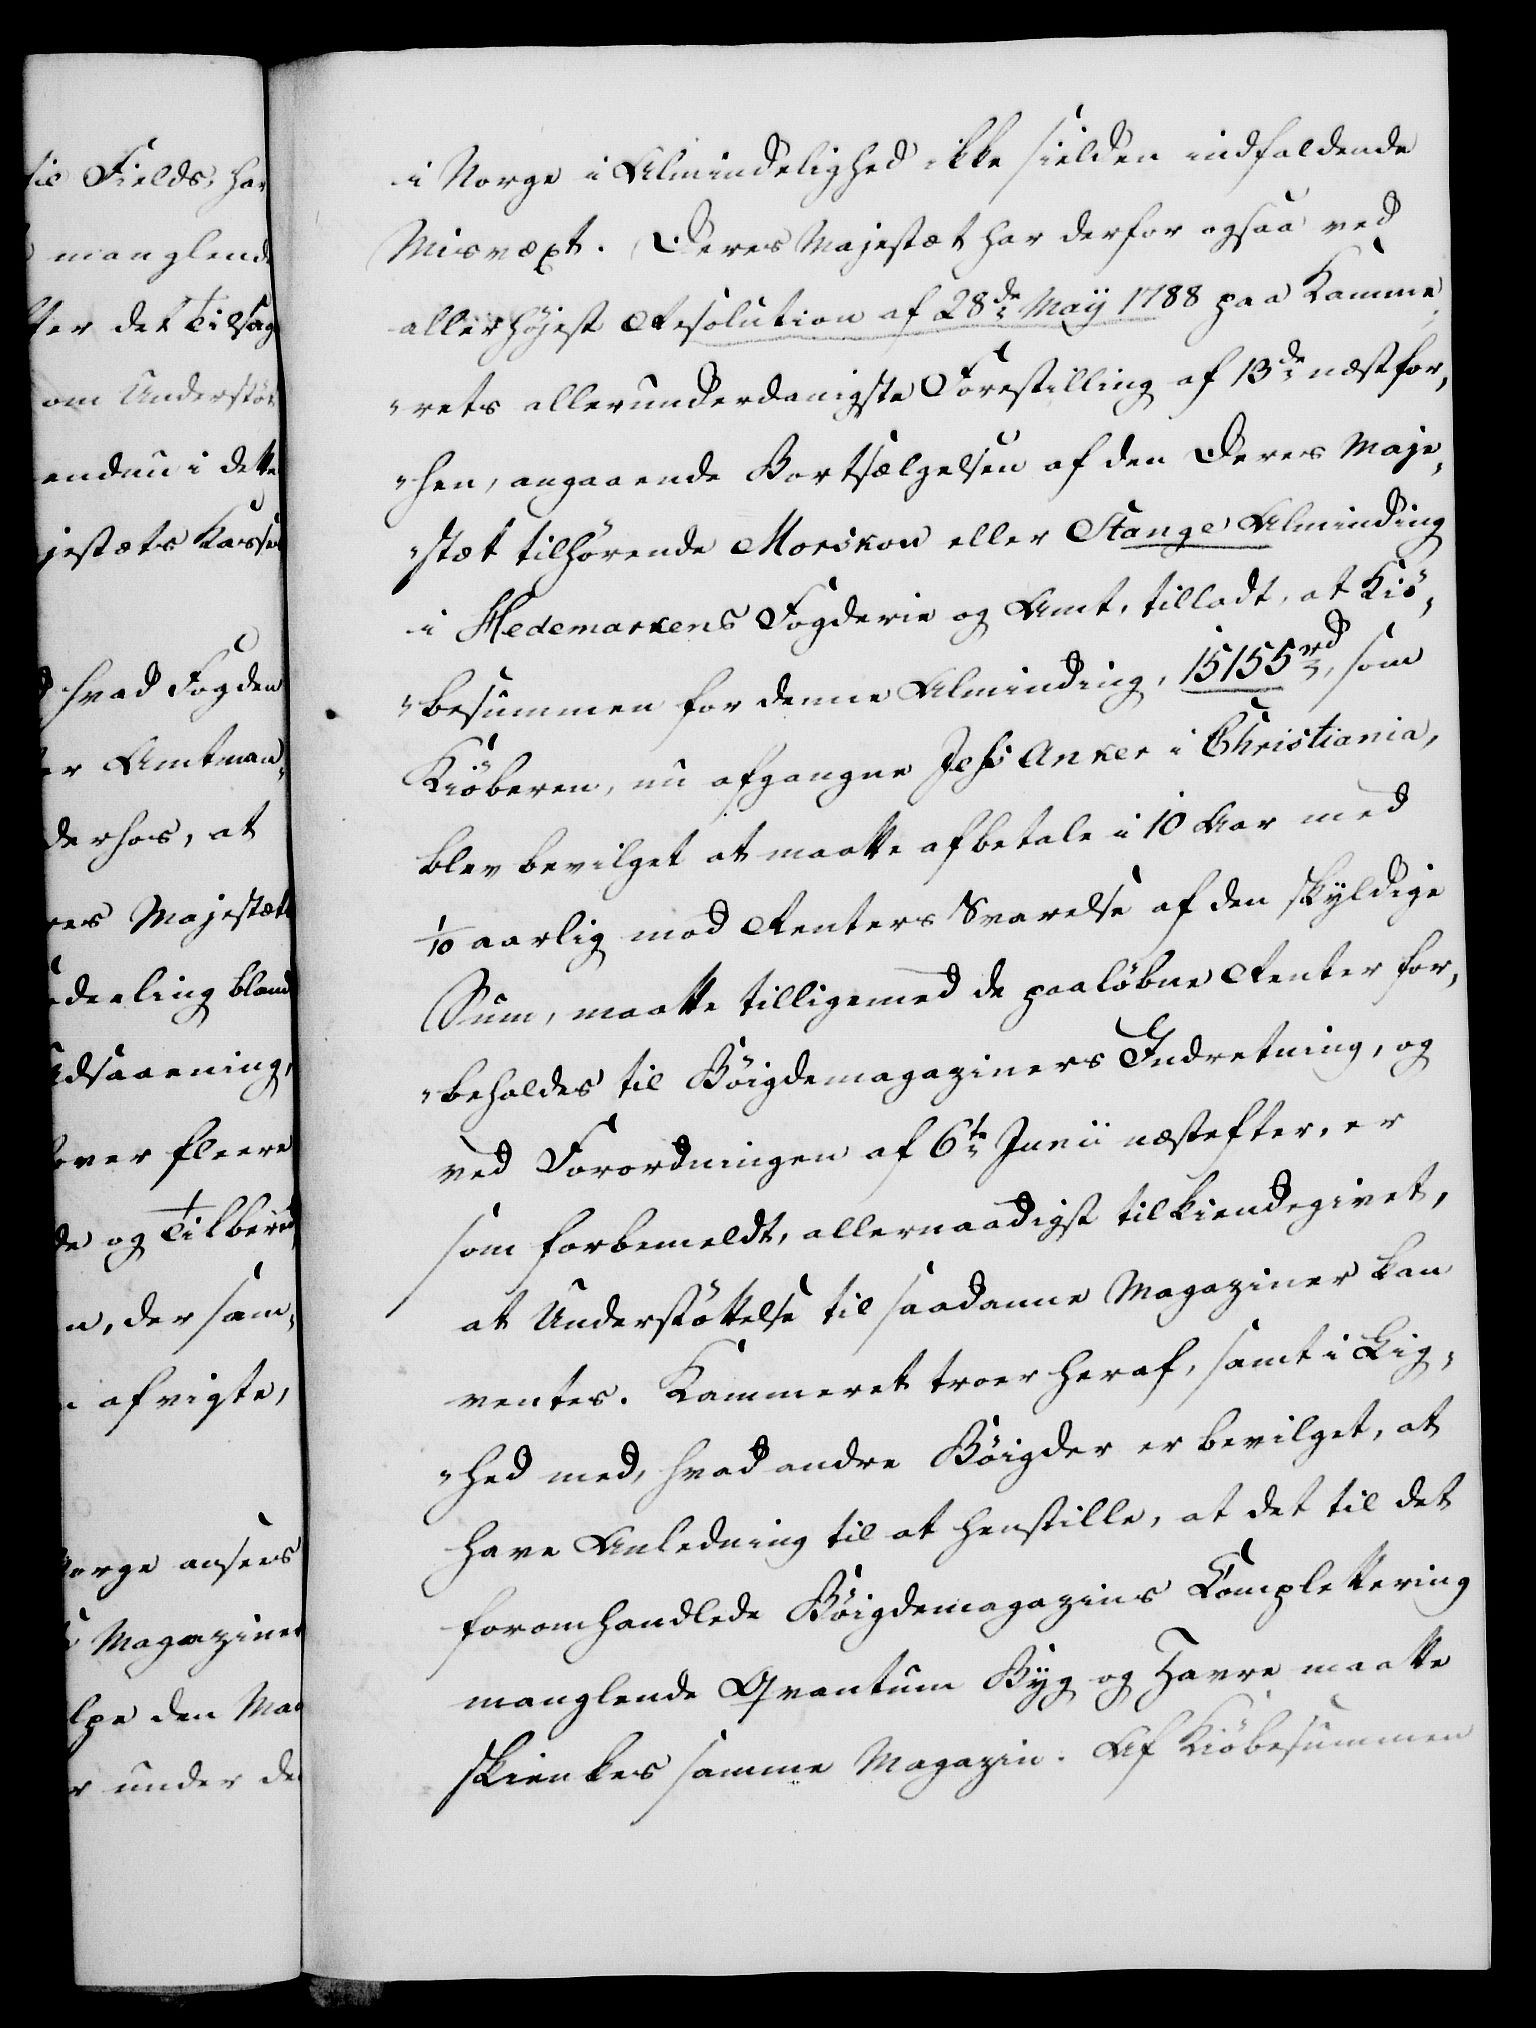 til Fields, har
manglende
ter det Tilsag
om Understöt
endnu i dette
jestæts Kasse
hvad Fogden
er Amtman„
derhos, at
res Majestæt
deeling bland
Udsaaening,
over fleere
de og Tilbered
n, der sam„
afvigte,
Norge ansees
Magaziner
lpe den Man
r under de
i Norge i Almindelighed ikke sielden indfaldende
Misvæxt. Deres Majestæt har derfor ogsaa ved
allerhöjest Resolution af 28de May 1788 paa Kamme„
„rets allerunderdanigste Forestilling af 13de næstfor„
„hen, angaaende Bortsælgelsen af den Deres Maje„
„stæt tilhörende Morskov eller Stange Alminding
i Hedemarkens Fogderie og Amt, tilladt, at Kiö„
„besummen for denne Alminding, 15155 rd, som
Kiöberen, nu afgangne Jess Anker i Christiania,
blev bevilget at maatte afbetale i 10 Aar med
1/10 aarlig mod Renters Svarelse af den skyldige
Sum, maatte tilligemed de paalöbne Renter for„
„beholdes til Böigdemagaziners Indretning, og
ved Forordningen af 6te Junii næstefter, er
som forbemeldt, allernaadigst tilkiendegivet,
at Understöttelse til saadanne Magaziner kan
ventes. Kammeret troer heraf, samt i Lig„
„hed med, hvad andre Böigder er bevilget, at
have Anledning til at henstille, at det til det
foromhandlede Böigdemagazins Complettering
manglende Qvantum Byg og Havre maatte
skienkes samme Magazin. Af Kiöbesummen